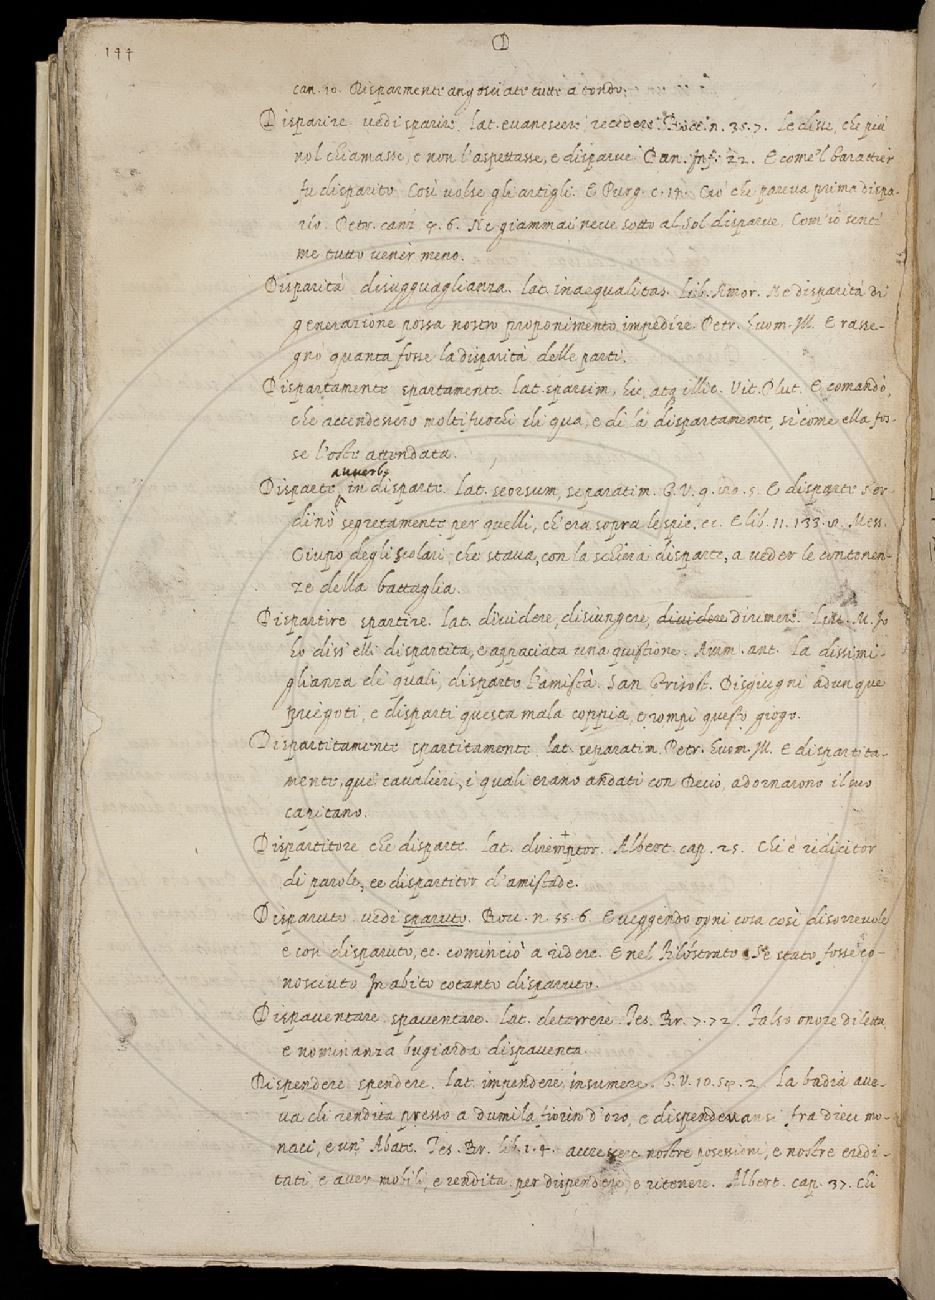 144
D
can. 10. Disparmente angosciate tutte a tondo.
Disparire vedi sparire. lat. evanescere, recedere. Bocc. n. 35. 7. Le disse, che più
nol chiamasse, e non l'aspettasse, e disparue. Dan. Inf. 22. E come 'l barattier
fu disparito Così volse gli artigli. E Purg. c. 15. Ciò che pareua prima dispa-
río. Petr. canz. 4. 6. Ne giammai neue sotto al Sol disparue, Com' io senti'
me tutto venir meno.
Disparità disugguaglianza. lat. inaequalitas. Lib. Amor. Ne disparità di
generazione possa nostro proponimento impedire. Petr. Huom. Ill. E rasse-
gnò quanta fosse la disparità delle parti.
Dispartamente spartamente. lat. sparsim, hic, atq illic. Vit. Plut. E comandò,
che accendessero molti fuochi di qua, e di là dispartamente, sì come ella fos-
se l'oste attendata.
auuerb.
Disparte, in disparte. lat. seorsum, separatim. G. V. 9. 120. 5. E disparte s'or-
dinò segretamente per quelli, ch'era sopra le spie, ec. E lib. 11. 133. Mess.
Ciupo degli Scolari, che staua, con la schiera disparte, a veder le contenen-
ze della battaglia.
Dispartire spartire. lat. diuidere, disiungere, diuidere dirimere. M. Io
ho diss' elli dispartita, e appaciata una quistione. Amm. ant. La dissimi-
glianza de' quali, disparte l'amistà. San Grisost. Disgiugni adunque
priegoti, e disparti questa mala coppia, e rompi questo giogo.
Dispartitamente spartitamente. lat. separatim. Petr. Huom. Ill. E dispartita-
mente, que' caualieri, i quali erano andati con Decio, adornarono il suo
capitano.
Dispartitore che disparte. lat. diremptor. Albert. cap. 25. Chi è ridicitor
di parole, ee dispartitor d'amistade.
Disparuto vedi sparuto. Bocc. n. 55. 6. E veggendo ogni cosa così disorreuole
e così disparuto, ec. cominciò a ridere. E nel Filostrato. Se stato fosse co-
nosciuto In abito cotanto disparuto.
Dispauentare spauentare. lat. deterrere Tes. Br. 7. 72. Falso onore diletta,
e nominanza bugiarda dispauenta.
Dispendere spendere. lat. impendere, insumere. G. V. 10. 2. La badia aue-
ua di rendita presso a dumila fiorin d'oro, e dispendeuansi fra dieci mo-
naci, e un' Abate. Tes. Br. lib. 1. 4. accessere nostre possessioni, e nostre eredi-
tati, e aver mobili, e rendita, per dispendere, e ritenere. Albert. cap. 37. Chi